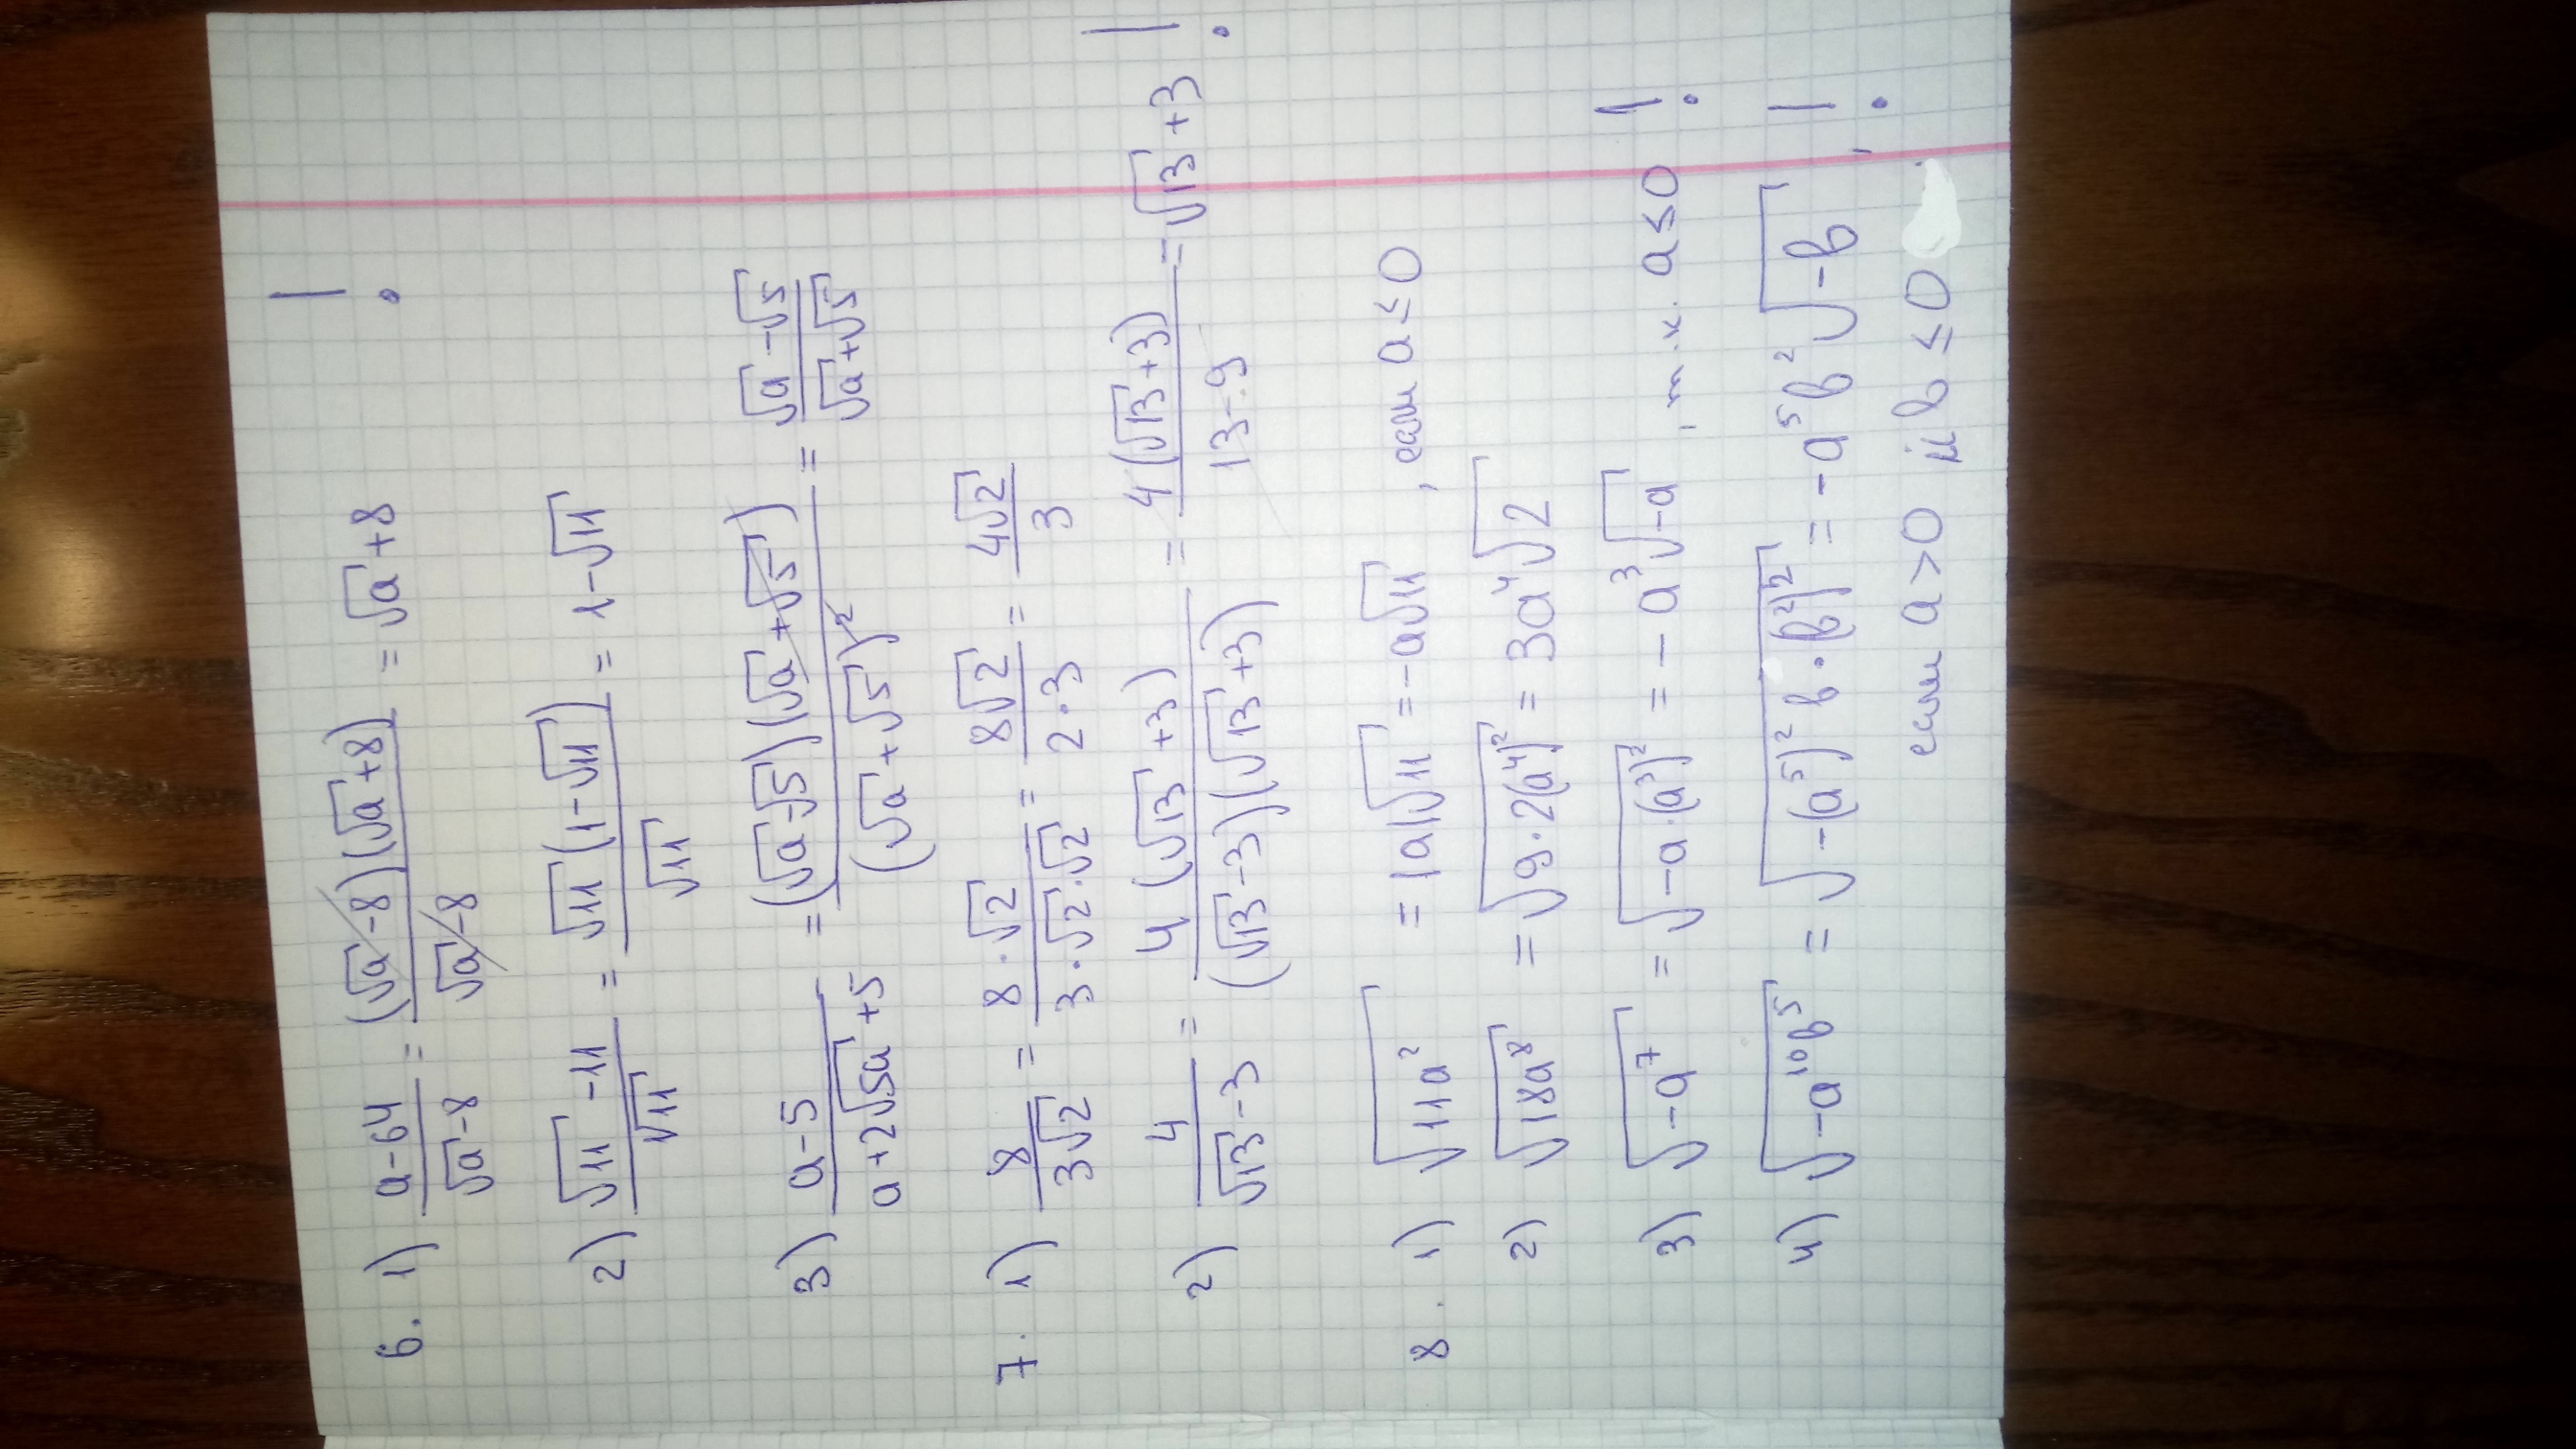 6. 1) (a-64)/(√a-8) = ((√a-8)(√a+8))/(√a-8) = √a+8 !
2) (√11-11)/√11 = (√11(1-√11))/√11 = 1-√11
3) (a-5)/(a+2√5a+5) = ((√a-√5)(√a+√5))/(√a+√5)² = (√a-√5)/(√a+√5)
7. 1) 8/(3√2) = (8·√2)/(3·√2·√2) = 8√2/(2·3) = 4√2/3
2) 4/(√13-3) = (4(√13+3))/((√13-3)(√13+3)) = (4(√13+3))/(13-9) = √13+3 !
8. 1) √(11a²) = |a|√11 = -a√11, если a≤0
2) √(18a⁸) = √(9·2(a⁴)²) = 3a⁴√2
3) √(-a⁷) = √(-a·(a³)²) = -a³√(-a), т.к. a≤0 !
4) √(-a¹⁰b⁵) = √(-(a⁵)²b·(b²)²) = -a⁵b²√(-b), !
если a>0 и b≤0